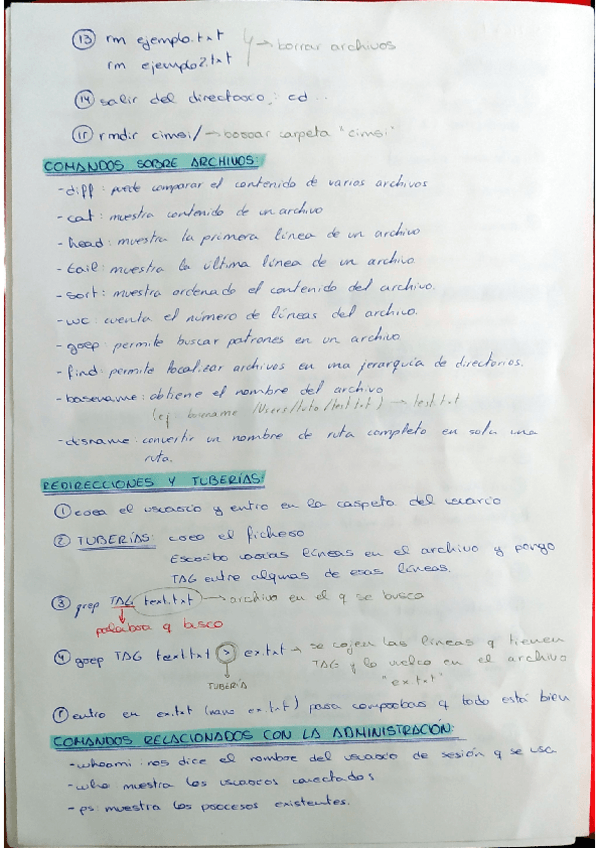 ⑬ rm ejemplo.txt
rm ejemplo2.txt → borrar archivos
⑭ salir del directorio: cd ..
⑮ rmdir cimsi/ → borrar carpeta "cimsi"
COMANDOS SOBRE ARCHIVOS:
- diff: puede comparar el contenido de varios archivos
- cat: muestra contenido de un archivo
- head: muestra la primera línea de un archivo
- tail: muestra la última línea de un archivo
- sort: muestra ordenado el contenido del archivo.
- wc: cuenta el número de líneas del archivo.
- grep: permite buscar patrones en un archivo
- find: permite localizar archivos en una jerarquía de directorios.
- basename: obtiene el nombre del archivo
(ej: basename /Users/tuto/test.txt) → test.txt
- dirname: convertir un nombre de ruta completo en solo una
ruta.
REDIRECCIONES Y TUBERÍAS:
① creo el usuario y entro en la carpeta del usuario
② TUBERÍAS: creo el fichero
Escribo varias líneas en el archivo y pongo
TAG entre algunas de esas líneas.
③ grep TAG text.txt → archivo en el q se busca
palabra q busco
④ grep TAG text.txt > ex.txt → se cojen las líneas q tienen
TAG y lo vuelco en el archivo
"ex.txt"
TUBERÍA
⑤ entro en ex.txt (nano ex.txt) para comprobar q todo está bien
COMANDOS RELACIONADOS CON LA ADMINISTRACIÓN:
- whoami: nos dice el nombre del usuario de sesión q se usa
- who muestra los usuarios conectados
- ps: muestra los procesos existentes.